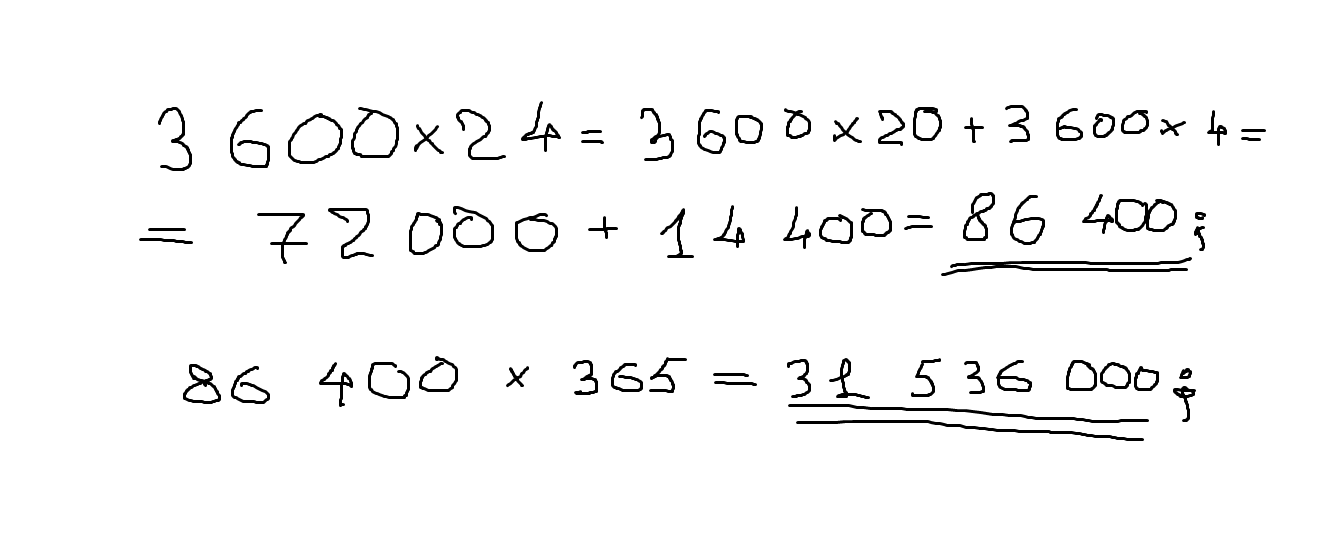 3 600×24 = 3 600×20 + 3 600×4 =
= 72 000 + 14 400 = 86 400;
86 400 × 365 = 31 536 000;